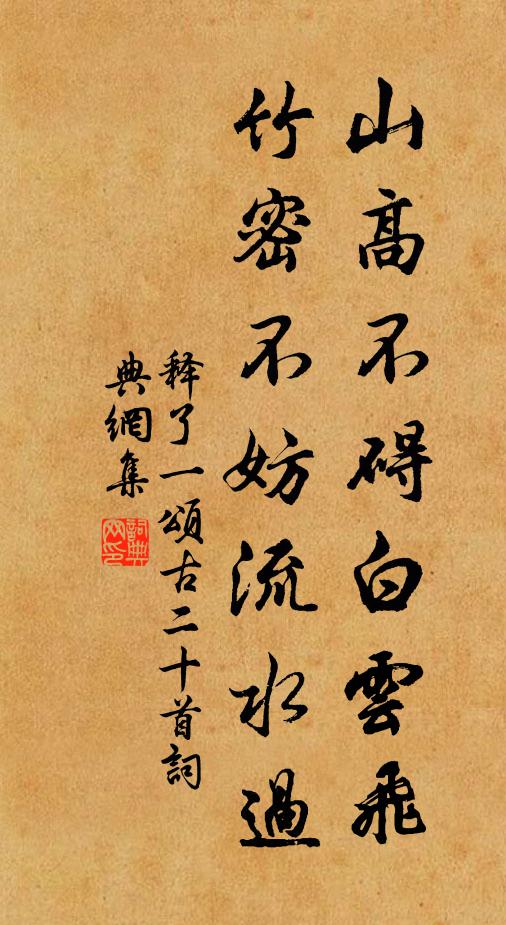 山高不碍白雲飛
竹密不妨流水過
释了一頌古二十首詞
典網集
詞典网印